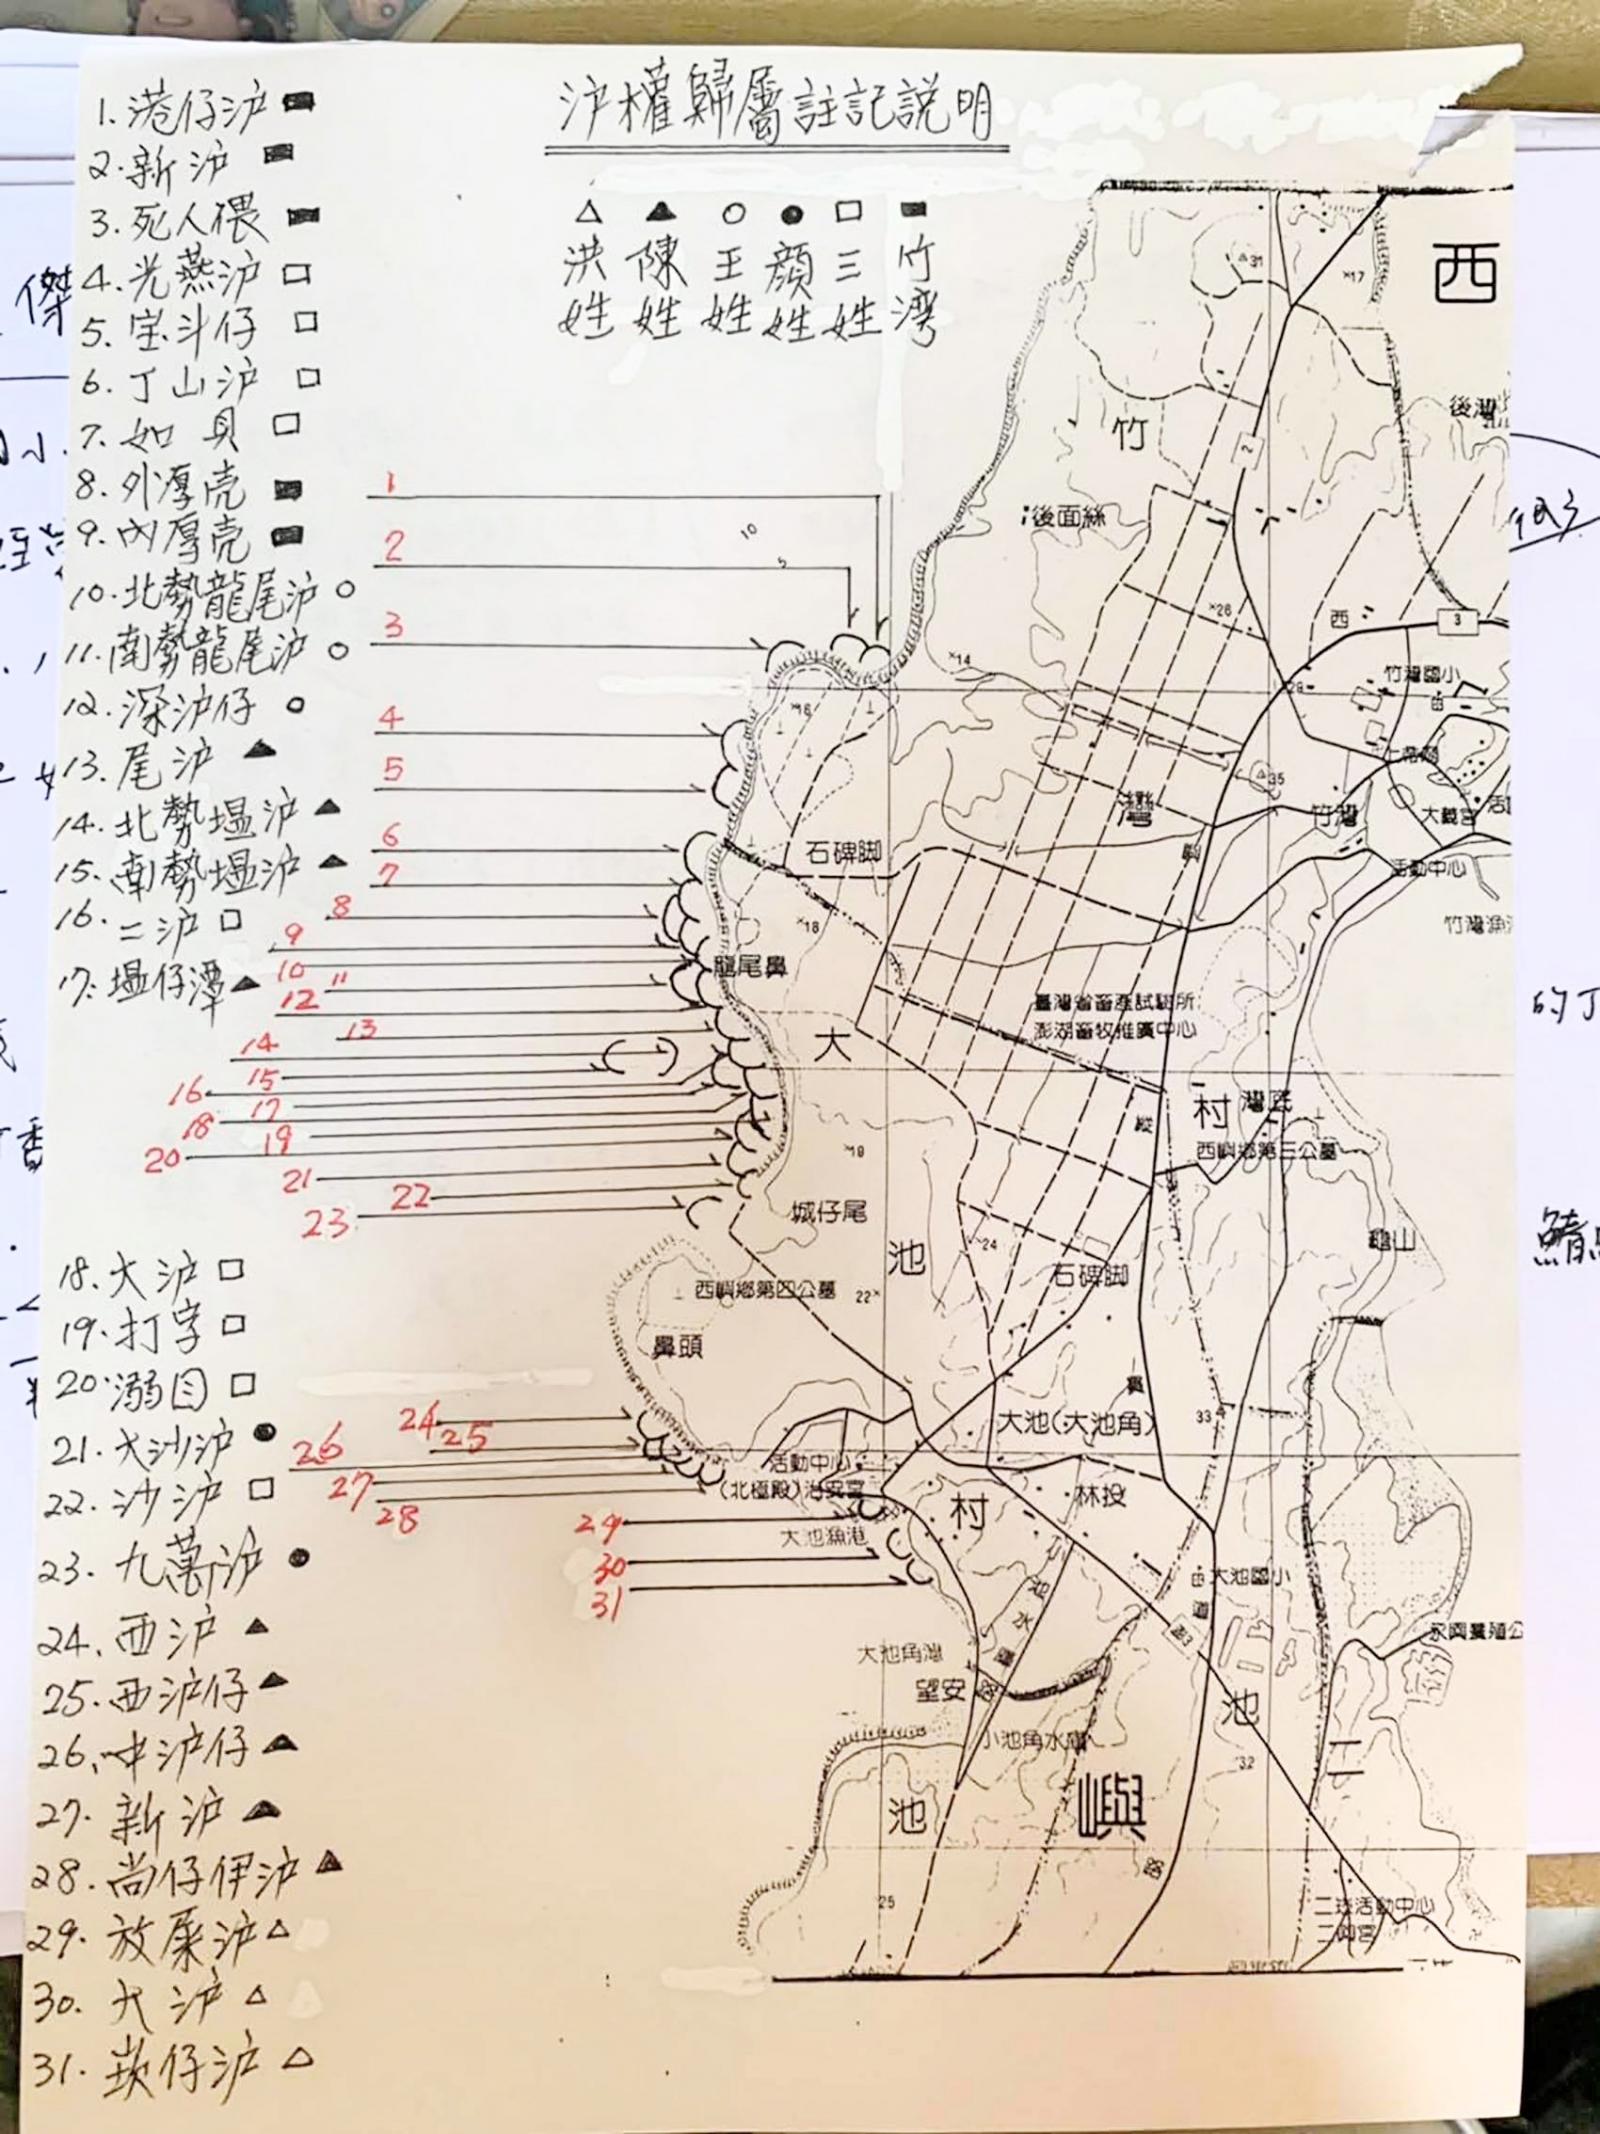 沪權歸屬註記説明
△ ▲ ○ ● □ ■
洪姓 陳姓 王姓 顏姓 三姓 竹湾
1. 港仔沪 ■
2. 新沪 ■
3. 死人偎 ■
4. 光燕沪 □
5. 宝斗仔 □
6. 丁山沪 □
7. 如貝 □
8. 外厚壳 ■
9. 內厚壳 ■
10. 北勢龍尾沪 ○
11. 南勢龍尾沪 ○
12. 深沪仔 ○
13. 尾沪 ▲
14. 北勢塭沪 ▲
15. 南勢塭沪 ▲
16. 二沪 □
17. 塭仔潭 ▲
18. 大沪 □
19. 打字 □
20. 溺囝 □
21. 大沙沪 ●
22. 沙沪 □
23. 九萬沪 ●
24. 西沪 ▲
25. 西沪仔 ▲
26. 中沪仔 ▲
27. 新沪 ▲
28. 尚仔伊沪 ▲
29. 放屎沪 △
30. 大沪 △
31. 崁仔沪 △
1
2
3
4
5
6
7
8
9
10
11
12
13
14
15
16
17
18
19
20
21
22
23
24
25
26
27
28
29
30
31
10
5
西
31
17
竹
後面絲
2
26
西
3
14
竹灣國小
16
35
灣
竹灣
大義宮
石碑腳
活動中心
18
龍尾鼻
臺灣省畜產試驗所
澎湖畜牧推廣中心
大
村
灣底
西嶼鄉第三公墓
19
城仔尾
龜山
池
24
石碑腳
西嶼鄉第四公墓
22
鼻頭
大池(大池角)
33
活動中心
(北極殿)治安宮
村
林投
大池漁港
大池國小
大池角灣
望安
池
小池角水庫
二
32
嶼
池
25
二崁活動中心
二興宮
傑
的丁